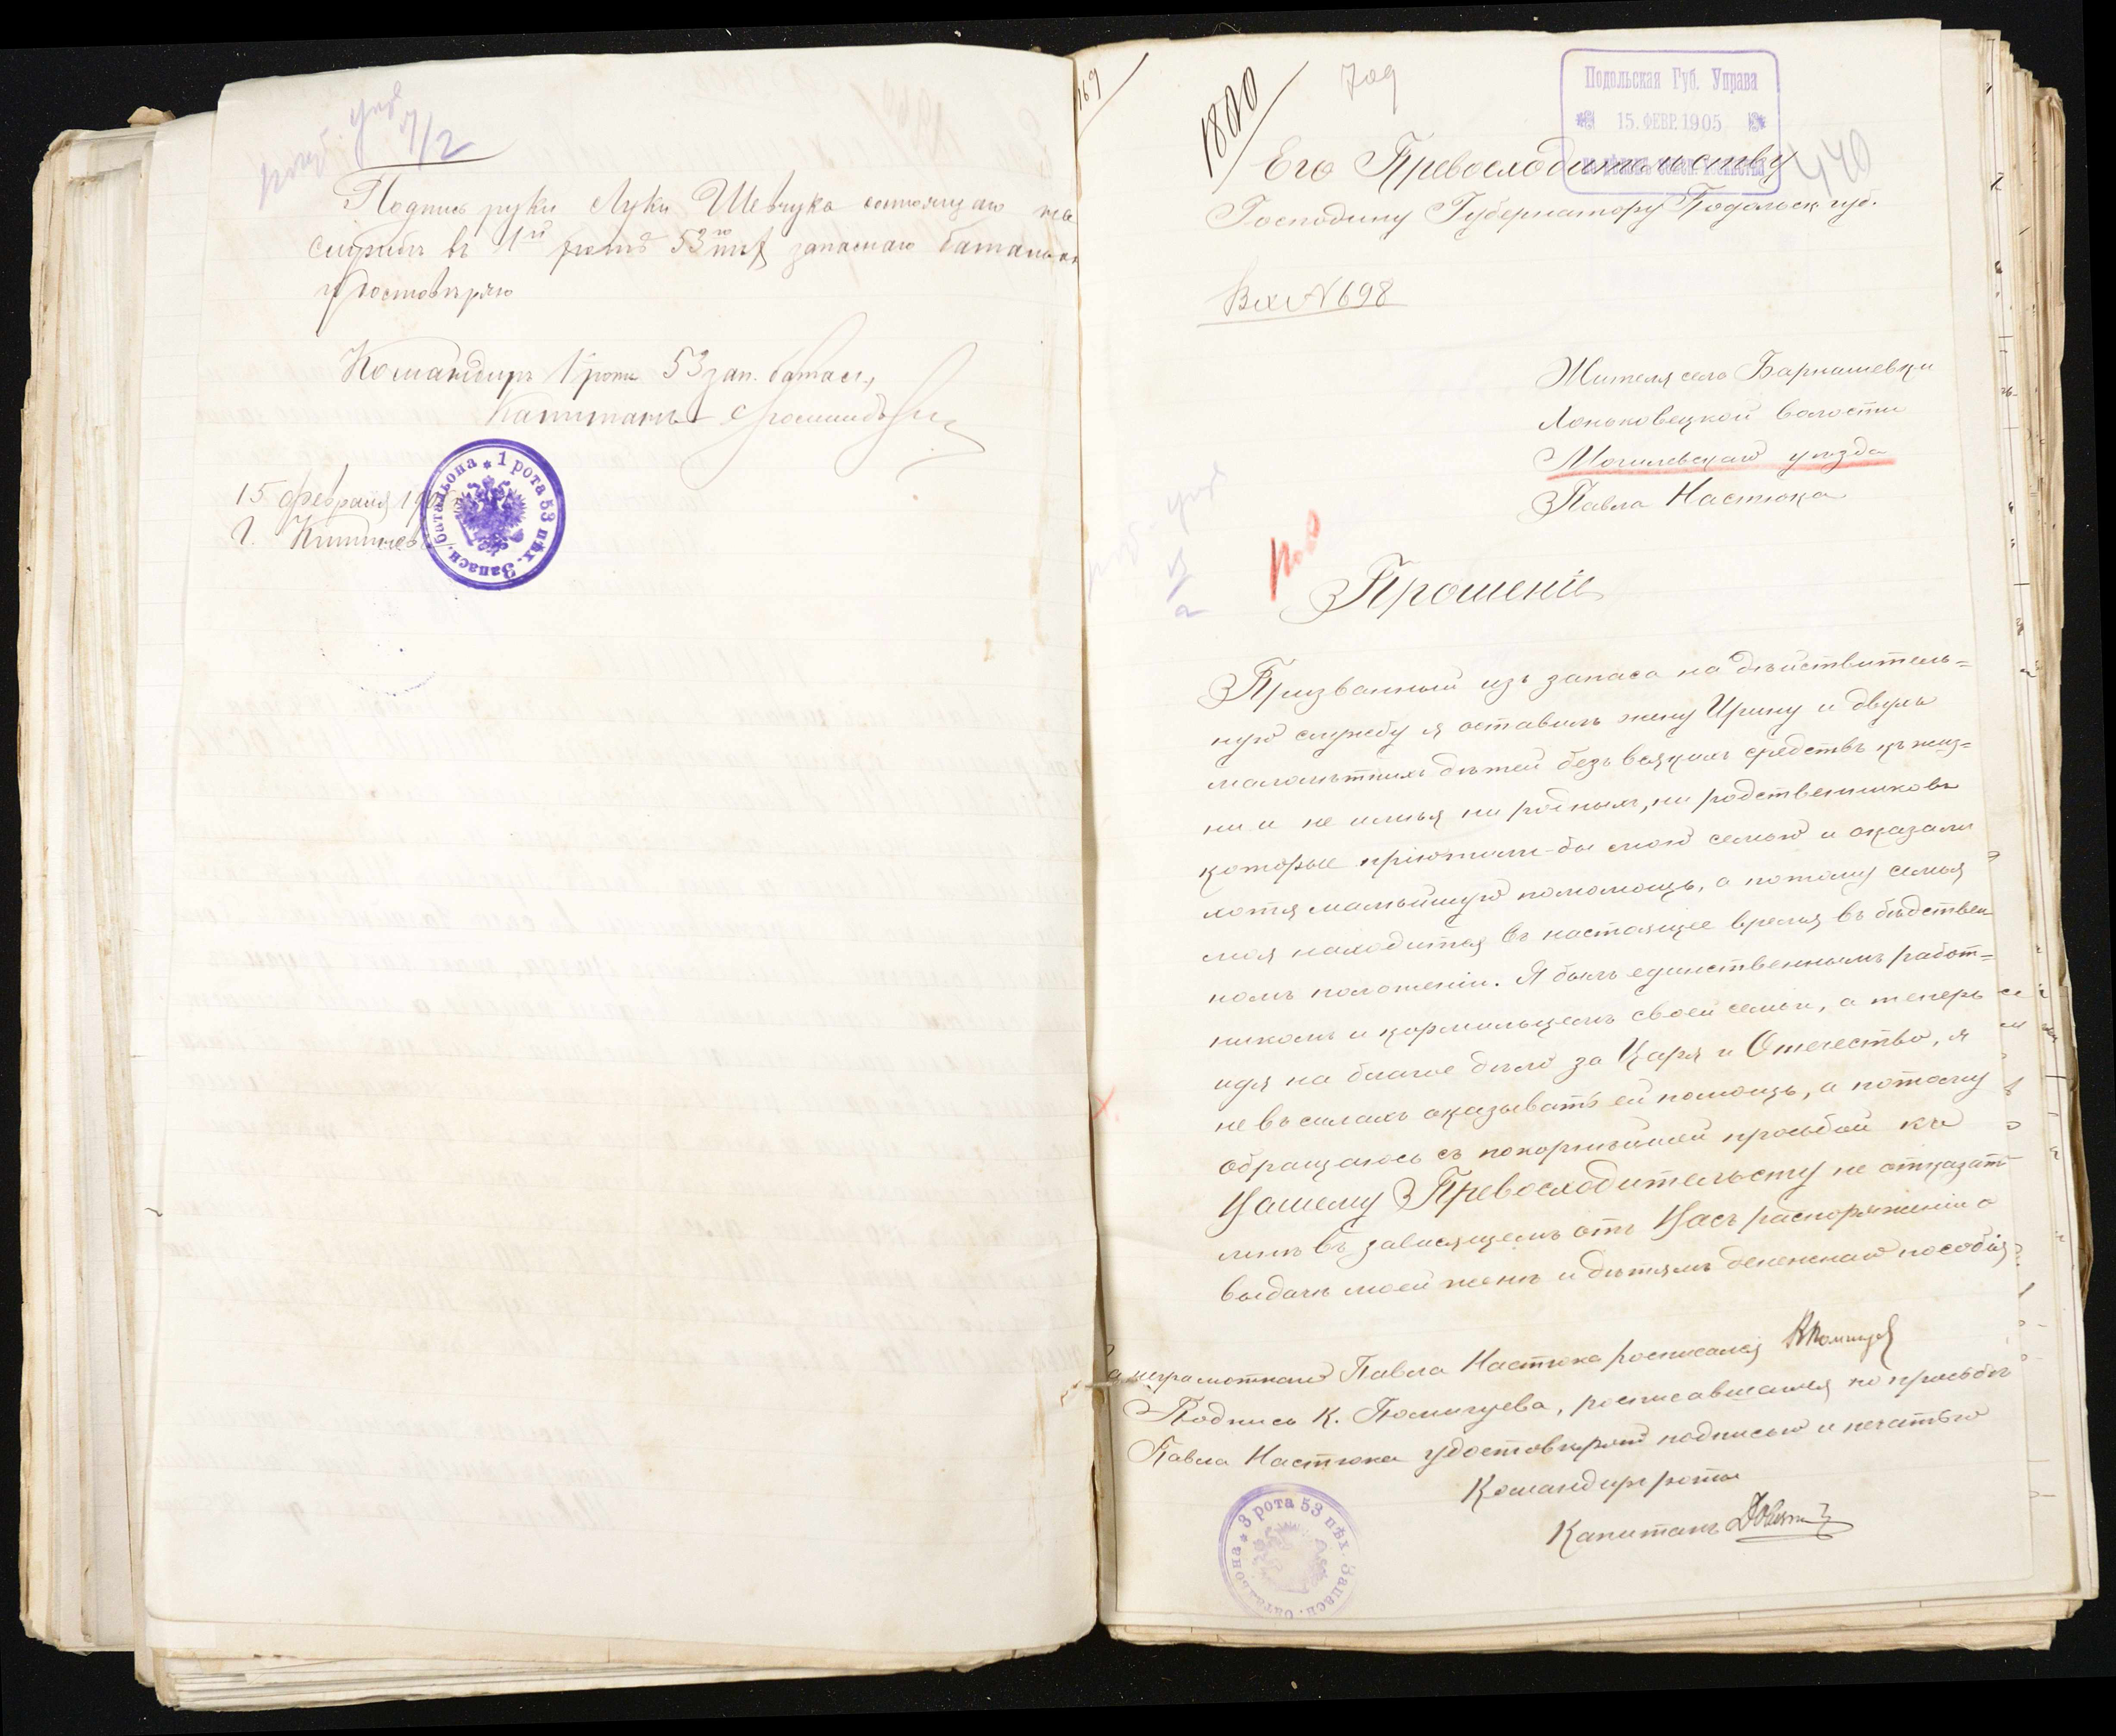 7/2
Подпись руки Луки Шевчука состоящаго на
службѣ въ 1й ротѣ 53 пѣх запаснаго баталіона
удостовѣряю
Командиръ 1 роты 53 зап. батал.,
Капитанъ
15 февраля 1905
г. Кишиневъ
1 рота 53 пѣх. Запасн. батальона
169
1800
709
Подольская Губ. Управа
15. ФЕВР. 1905
440
Его Превосходительству
Господину Губернатору Подольск. губ.
Вх № 698
Жителя села Барнашевки
Лоньковецкой волости
Могилевскаго уѣзда
Павла Настюка
Прошеніе
Призванный изъ запаса на дѣйствитель=
ную службу я оставилъ жену Ирину и двухъ
малолѣтнихъ дѣтей безъ всякихъ средствъ къ жиз=
ни и не имѣя ни родныхъ, ни родственниковъ
которые пріютили-бы мою семью и оказали
хотя малѣйшую помомощь, а потому семья
моя находится въ настоящее время въ бѣдствен
номъ положеніи. Я былъ единственнымъ работ=
никомъ и кормильцемъ своей семьи, а теперь
идя на благое дѣло за Царя и Отечество, я
не въ силахъ оказывать ей помощь, а потому
обращаюсь съ покорнѣйшей просьбой къ
Вашему Превосходительсту не отказать
мнѣ въ зависящемъ отъ Васъ распоряженіи о
выдачѣ моей женѣ и дѣтямъ денежнаго пособія
За неграмотнаго Павла Настюка росписался
Подпись К. Помигуева, росписавшагося по просьбѣ
Павла Настюка удостовѣряю подписью и печатью
Командиръ роты
Капитанъ
3 рота 53 пѣх. Запасн. батальона